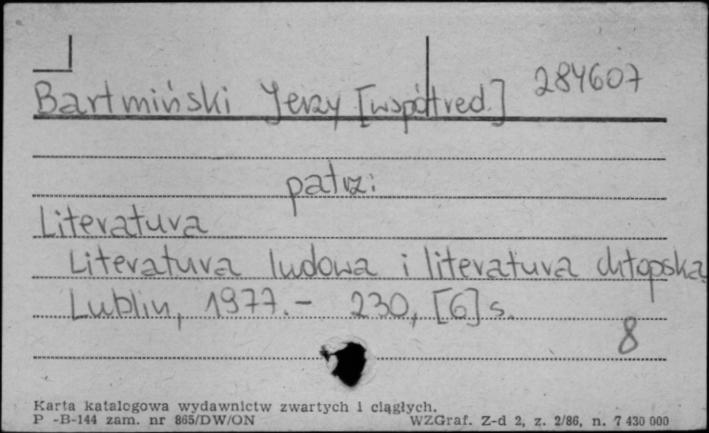 284607
Bartmiński Jerzy [współred.]
patrz:
Literatura
Literatura ludowa i literatura chłopska
Lublin, 1977. – 230, [6] s.
8
Karta katalogowa wydawnictw zwartych i ciągłych.
P -B-144 zam. nr 865/DW/ON WZGraf. Z-d 2, z. 2/86, n. 7 430 000